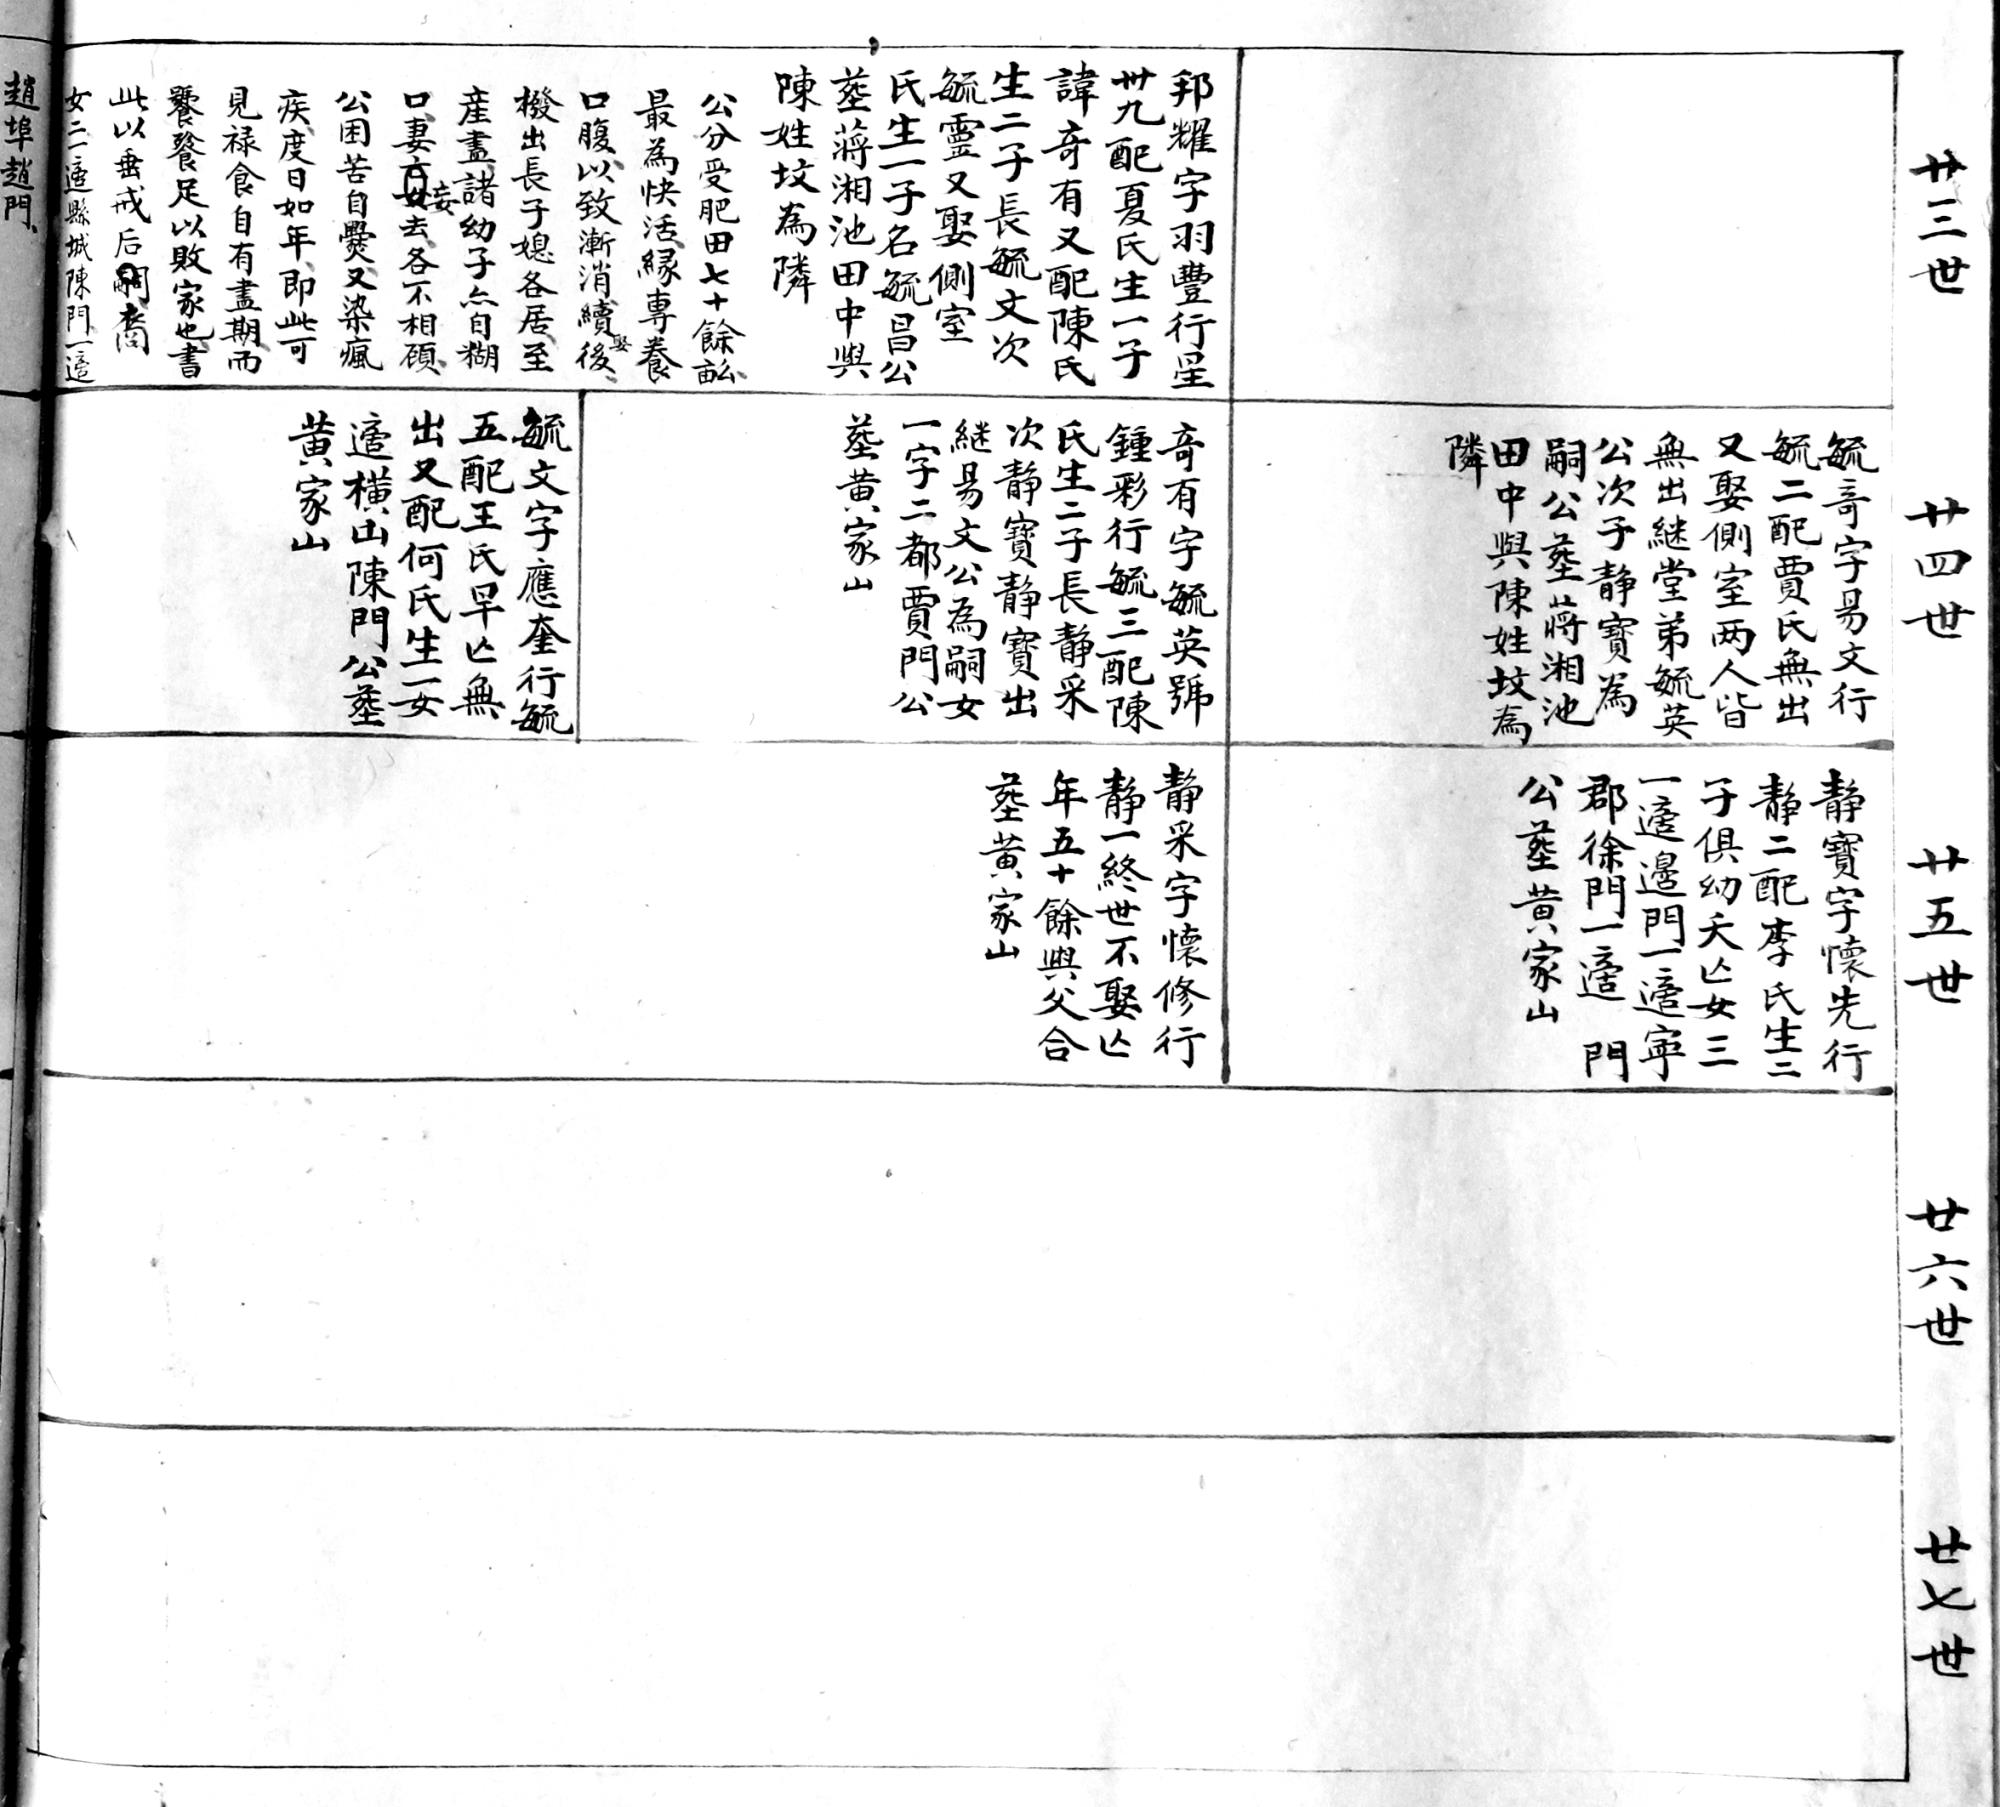 廿三世
邦耀字羽豐行星
卅九配夏氏生一子
諱奇有又配陳氏
生二子長毓文次
毓靈又娶側室
氏生一子名毓昌公
塟蔣湘池田中與
陳姓坟為隣
公分受肥田七十餘畝
最為快活緣專養
口腹以致漸消續後娶
撥出長子媳各居至
產盡諸幼子亦自糊
口妻妾去各不相顧
公困苦自爨又染瘋
疾度日如年即此可
見禄食自有盡期而
饕餮足以敗家也書
此以垂戒后嗣裔
女二一適縣城陳門一適
趙埠趙門
廿四世
毓奇字易文行
毓二配賈氏無出
又娶側室两人皆
無出継堂弟毓英
公次子静寶為
嗣公塟蔣湘池
田中與陳姓坟為
隣
奇有字毓英號
鍾彩行毓三配陳
氏生二子長静采
次静寶静寶出
継易文公為嗣女
一字二都賈門公
塟黄家山
毓文字應奎行毓
五配王氏早亾無
出又配何氏生一女
適橫山陳門公塟
黄家山
廿五世
静寶字懷先行
静二配李氏生三
子俱幼夭亾女三
一適邊門一適寧
郡徐門一適 門
公塟黄家山
静采字懷修行
静一終世不娶亾
年五十餘與父合
塟黄家山
廿六世
廿七世